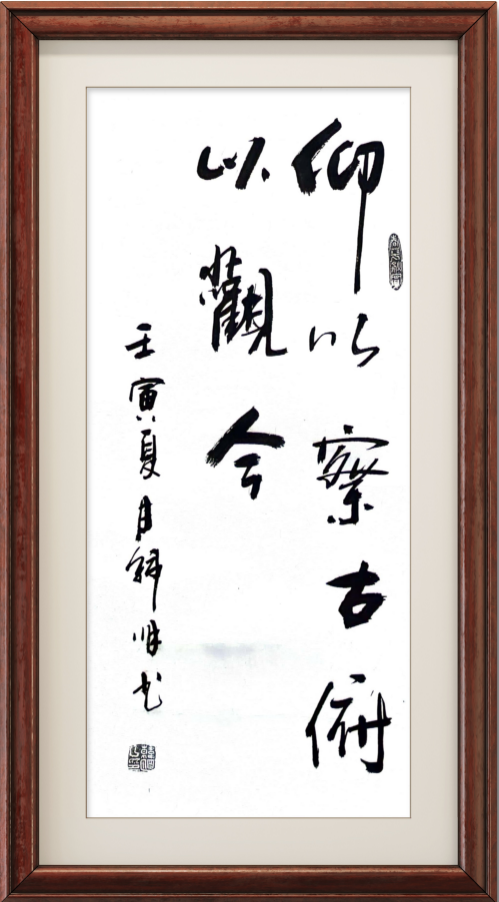 仰以察古俯
以觀今
壬寅夏月书